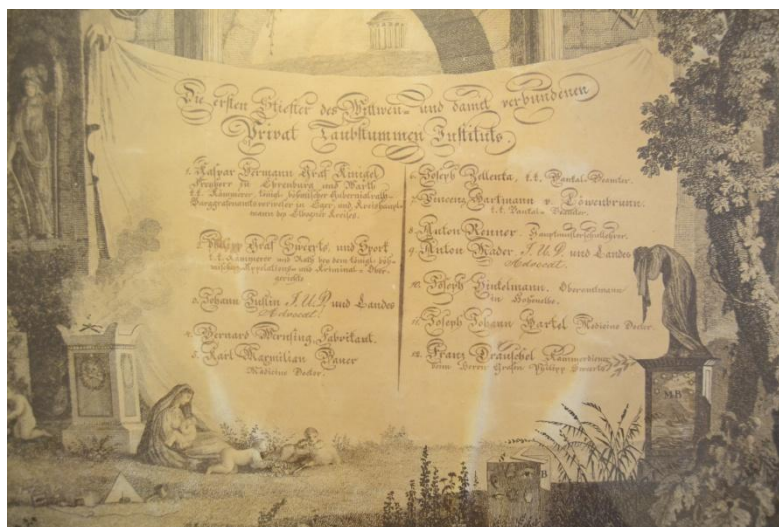 Die ersten Stiefter des Wittwen- und damit verbundenen
Privat Taubstummen Instituts.
1. Kaspar Hermann Graf Künigel
Freyherr zu Ehrenburg und Warth
k.k. Kämmerer, königl. böhmischer Gubernialrath
Burggrafenamtsverweser in Eger, und Kreishaupt-
mann des Elbogner Kreises.
2. Philipp Graf Sweerts und Spork
k.k. Kämmerer und Rath bey dem königl. böh-
mischen Appelations- und Kriminal-Ober-
gerichte
3. Johann Justin J.U.D. und Landes
Advocat.
4. Bernard Wernsing, Fabrikant.
5. Karl Maxmilian Bauer
Medicinae Doctor.
6. Joseph Zellenta, k.k. Bankal-Beamter.
7. Vincenz Hartmann v. Löwenbrunn.
k.k. Bankal-Beamter.
8. Anton Renner, Hauptmusterschullehrer.
9. Anton Mader J.U.D. und Landes
Advocat.
10. Joseph Hinkelmann, Oberamtmann
in Hohenelbe.
11. Joseph Johann Hartel Medicinae Doctor.
12. Franz Kammerdiener
beim Herrn Grafen Philipp Swerts
MB
B